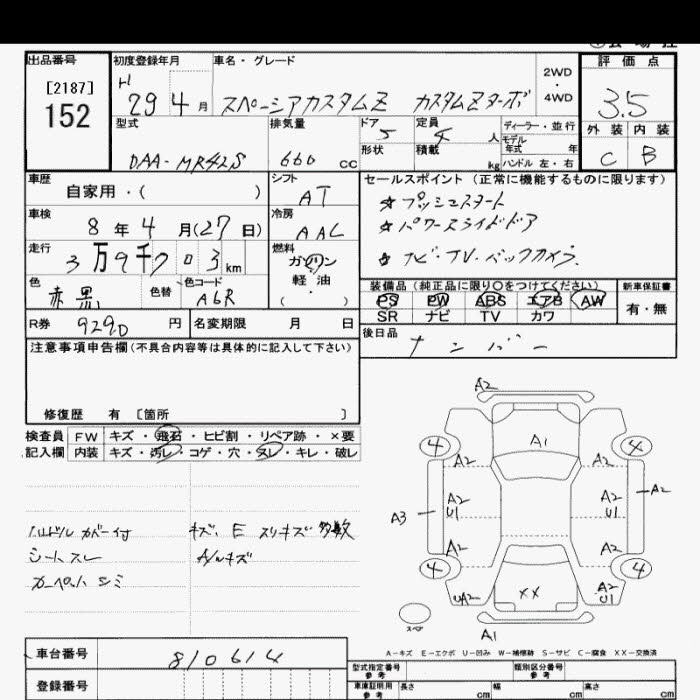 出品番号
[2187]
152
初度登録年月
H
29 4 月
車名・グレード
スペーシアカスタムZ カスタムZターボ
2WD
・
4WD
評価点
3.5
外装 内装
C B
型式
DAA-MR42S
排気量
660 cc
ドア
5
形状
定員
4 人
積載
kg
ディーラー・並行
モデル年式 年
ハンドル 左・右
車歴
自家用・( )
シフト
AT
車検
8 年 4 月(27 日)
冷房
AAC
走行
3 万9千7 0 3 km
燃料
ガソリン
軽油
( )
色
赤黒
色替
色コード
A6R
R券 9290 円
名変期限 月 日
セールスポイント(正常に機能するものに限ります)
☆ プッシュスタート
☆ パワースライドドア
☆ ナビ・TV・バックカメラ
装備品(純正品に限り〇をつけてください)
PS PW ABS エアB AW
SR ナビ TV カワ
新車保証書
有・無
後日品
ナンバー
注意事項申告欄(不具合内容等は具体的に記入して下さい)
修復歴 有 〔箇所 〕
検査員
記入欄
FW キズ・飛石・ヒビ割・リペア跡・×要
内装 キズ・汚レ・コゲ・穴・スレ・キレ・破レ
ハンドル カバー付
シートスレ
カーペット シミ
キズ、E スリキズ 多数
A/Wキズ
A2
A1
4 4
A2 A2
A2
U1
A2
U1
A2
A3
A2 A2
4 4
UA2
XX
A2
U1
スペア
A1
A-キズ E-エクボ U-凹み W-補修跡 S-サビ C-腐食 XX-交換済
車台番号
810614
登録番号
型式指定番号
参考
類別区分番号
参考
車庫証明用
参考
長さ cm
幅 cm
高さ cm